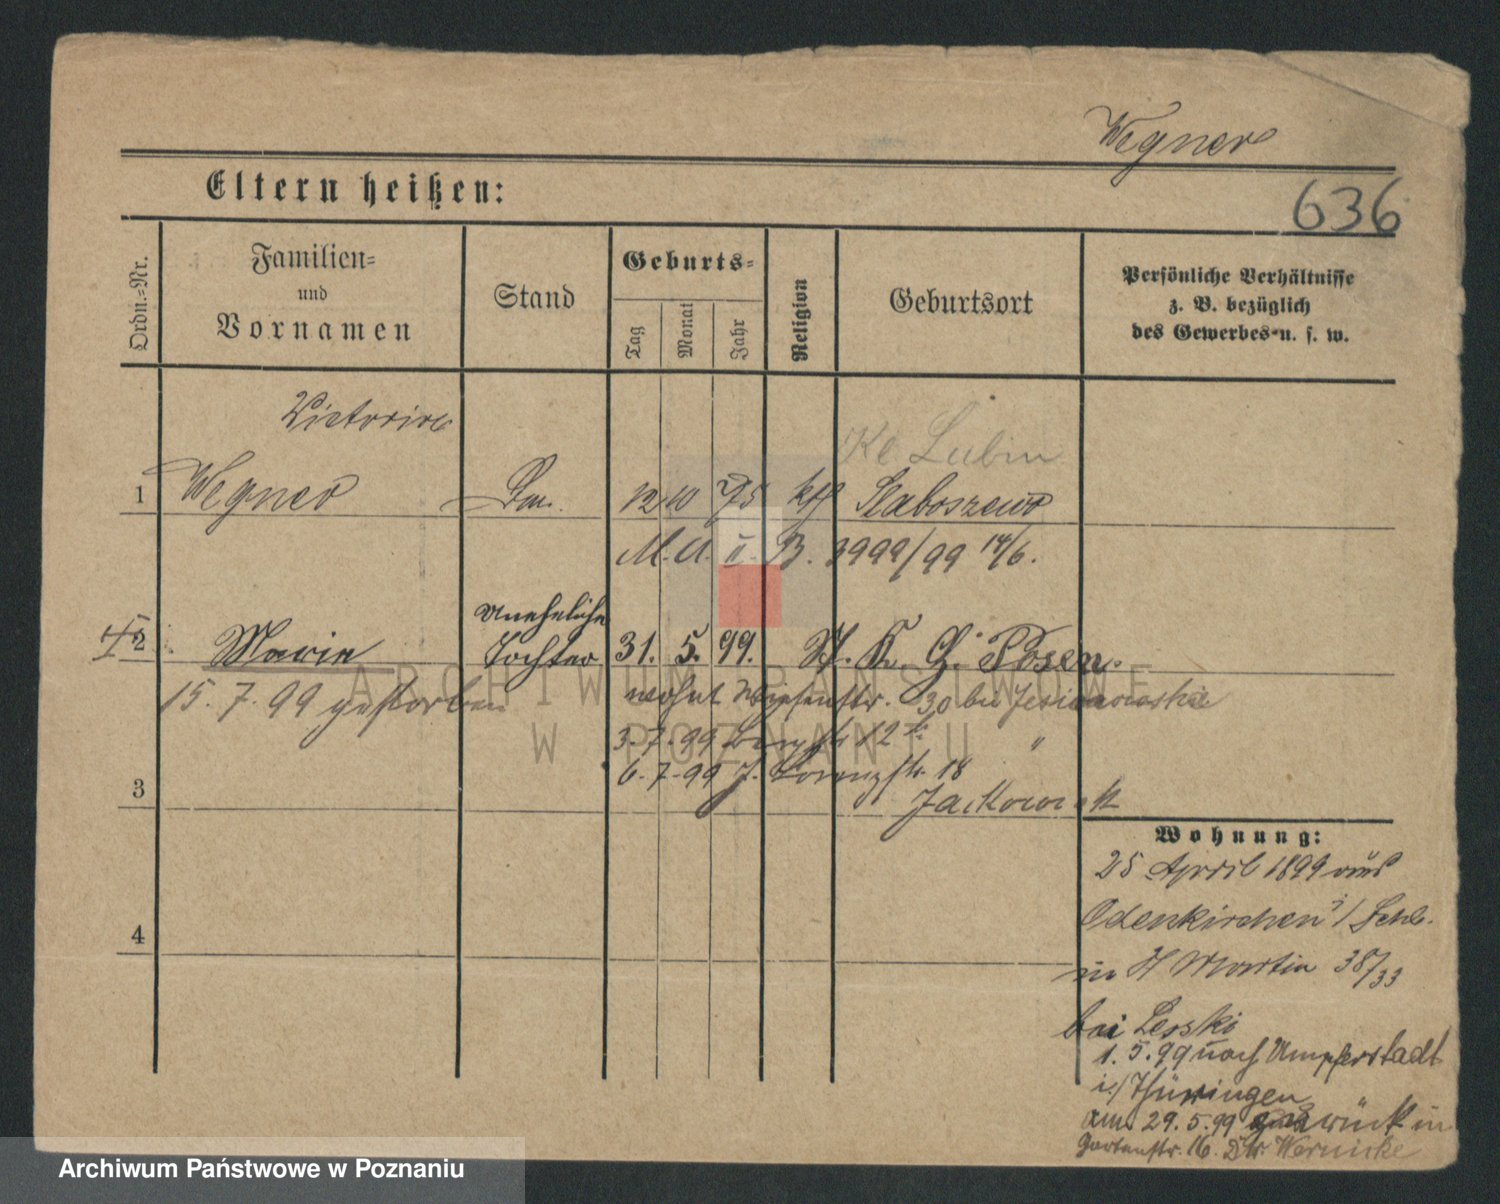 Wegner
Eltern heißen:
636
Ordn.-Nr.
Familien=
und
Vornamen
Stand
Geburts=
Tag
Monat
Jahr
Religion
Geburtsort
Persönliche Verhältnisse
z. B. bezüglich
des Gewerbes u. s. w.
Victoria
Kl Lubin
1 Wegner 12 10 75 kth Slaboszewo
M. A. II. B. 9999/99 14/6.
uneheliche
2 Marie Tochter 31. 5. 99. St. K. G. Posen.
15. 7. 99 gestorben
wohnt Wiesenstr. 30 bei
3. 7. 99 12 "
6. 7. 99 18
3 Jackowiak
Wohnung:
25 April 1899 aus
Odenkirchen
4
in St Martin 38/33
bei Lesski
1. 5. 99 nach Umpferstadt
i/Thüringen
am 29. 5. 99 zurück in
Gartenstr. 16. Dr. Wernicke
ARCHIWUM PAŃSTWOWE
W POZNANIU
Archiwum Państwowe w Poznaniu